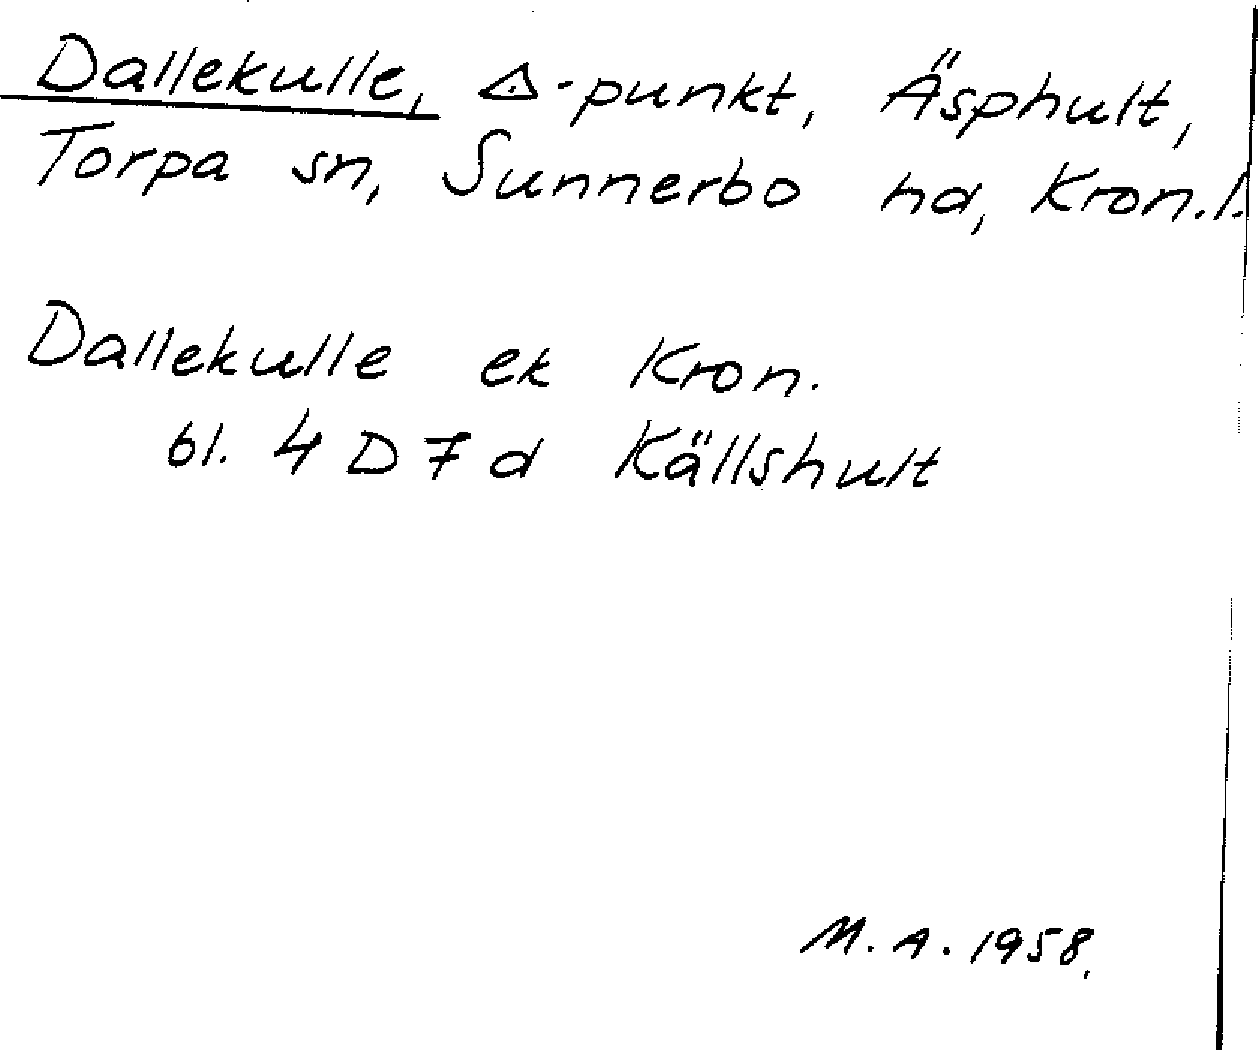 Dallekulle, △-punkt, Äsphult,
Torpa sn, Sunnerbo hd, Kron.l.
Dallekulle ek Kron.
bl. 4 D 7 d Källshult
M. A. 1958.